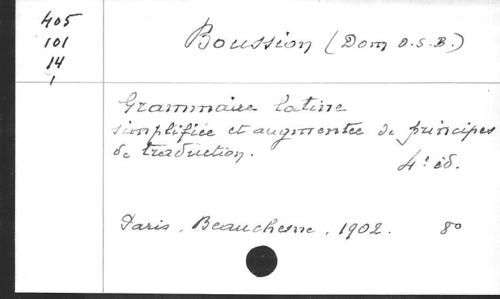 405
101
14
1
Boussion (Dom O.S.B.)
Grammaire latine
simplifiée et augmentée de principes
de traduction.
4e éd.
Paris, Beauchesne, 1902. 8o